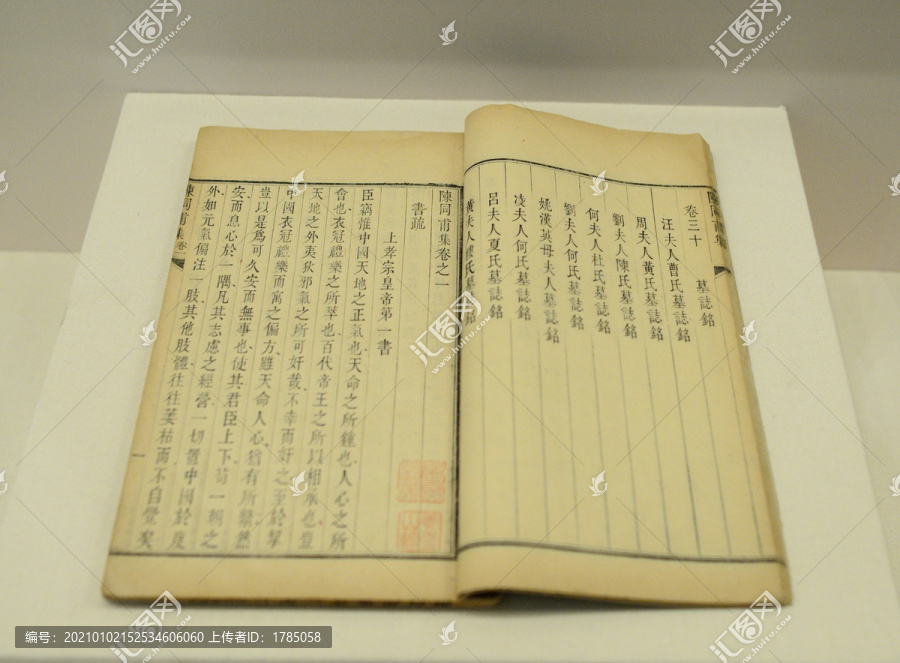 陳同甫集
卷三十
墓誌銘
汪夫人曹氏墓誌銘
周夫人黃氏墓誌銘
劉夫人陳氏墓誌銘
何夫人杜氏墓誌銘
劉夫人何氏墓誌銘
姚漢英母夫人墓誌銘
凌夫人何氏墓誌銘
呂夫人夏氏墓誌銘
黃夫人樓氏墓誌銘
陳同甫集卷之一
書疏
上孝宗皇帝第一書
臣竊惟中國天地之正氣也天命之所鍾也人心之所
會也衣冠禮樂之所萃也百代帝王之所以相承也豈
天地之外夷狄邪氣之所可奸哉不幸而奸之至於挈
中國衣冠禮樂而寓之偏方雖天命人心猶有所繫然
豈以是為可久安而無事也使其君臣上下苟一朝之
安而息心於一隅凡其志慮之經營一切置中國於度
外如元氣偏注一肢其他肢體往往萎枯而不自覺矣
陳同甫集
卷一
一
汇图网
www.huitu.com
编号：20210102152534606060 上传者ID：1785058